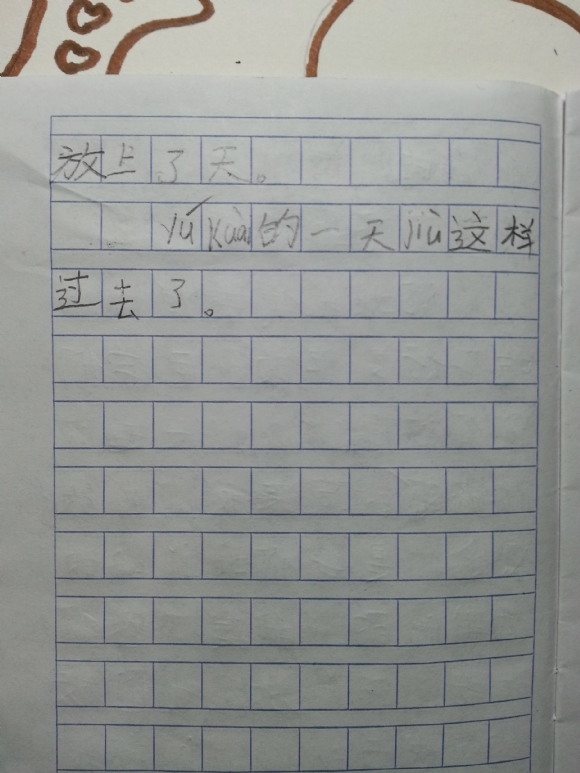 放上了天。
yú kuài的一天jiù这样
过去了。